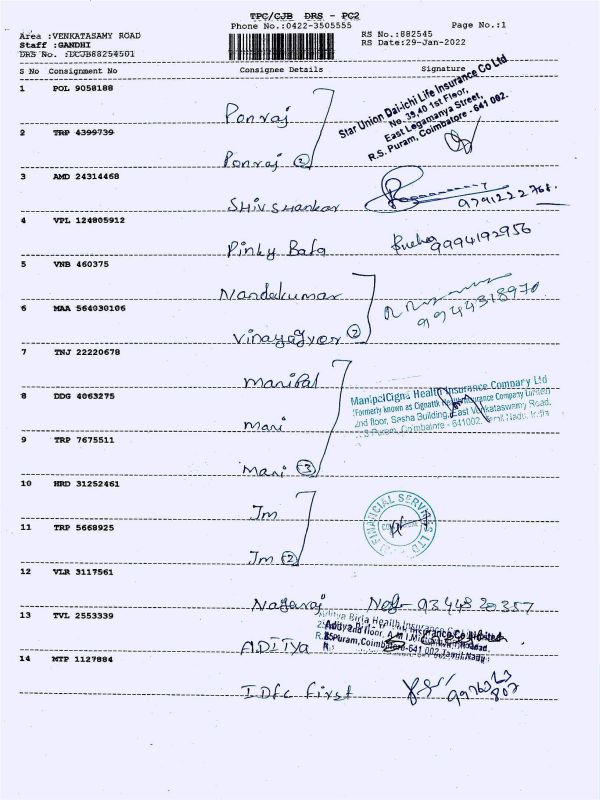 TPC/CJB DRS - PC2
Phone No.:0422-3505555
Page No.:1
Area :VENKATASAMY ROAD
RS No.:882545
Staff :GANDHI
RS Date:29-Jan-2022
DRS No. :DCJB88254501
S No Consignment No Consignee Details Signature
1 POL 9058188 Ponraj
Star Union Dai-ichi Life Insurance Co Ltd
No. 39,40 1st Floor,
East Legamanya Street,
R.S. Puram, Coimbatore - 641 002.
2 TRP 4399739 Ponraj 2
3 AMD 24314468 Shivshankar 9791222768.
4 VPL 124805912 Pinky Bafa 9994192956
5 VNB 460375 Nandakumar
9944318970
6 MAA 564030106 Vinayagyor 2
7 TNJ 22220678 Manipal
ManipalCigna Health Insurance Company Ltd
(Formerly known as CignaTTK Health Insurance Company Limited
2nd floor, Sasha Building, East Venkataswamy Road,
R.S Puram, Coimbatore - 641002, Tamil Nadu, India
8 DDG 4063275 Mani
9 TRP 7675511 Mani 3
10 HRD 31252461 Im
FINANCIAL SERVICES LTD
11 TRP 5668925 Im 2
12 VLR 3117561 Nagaraj 9344820357
13 TVL 2553339 ADITYA
Aditya Birla Health Insurance Co. Limited
14 MTP 1127884 IDfc first